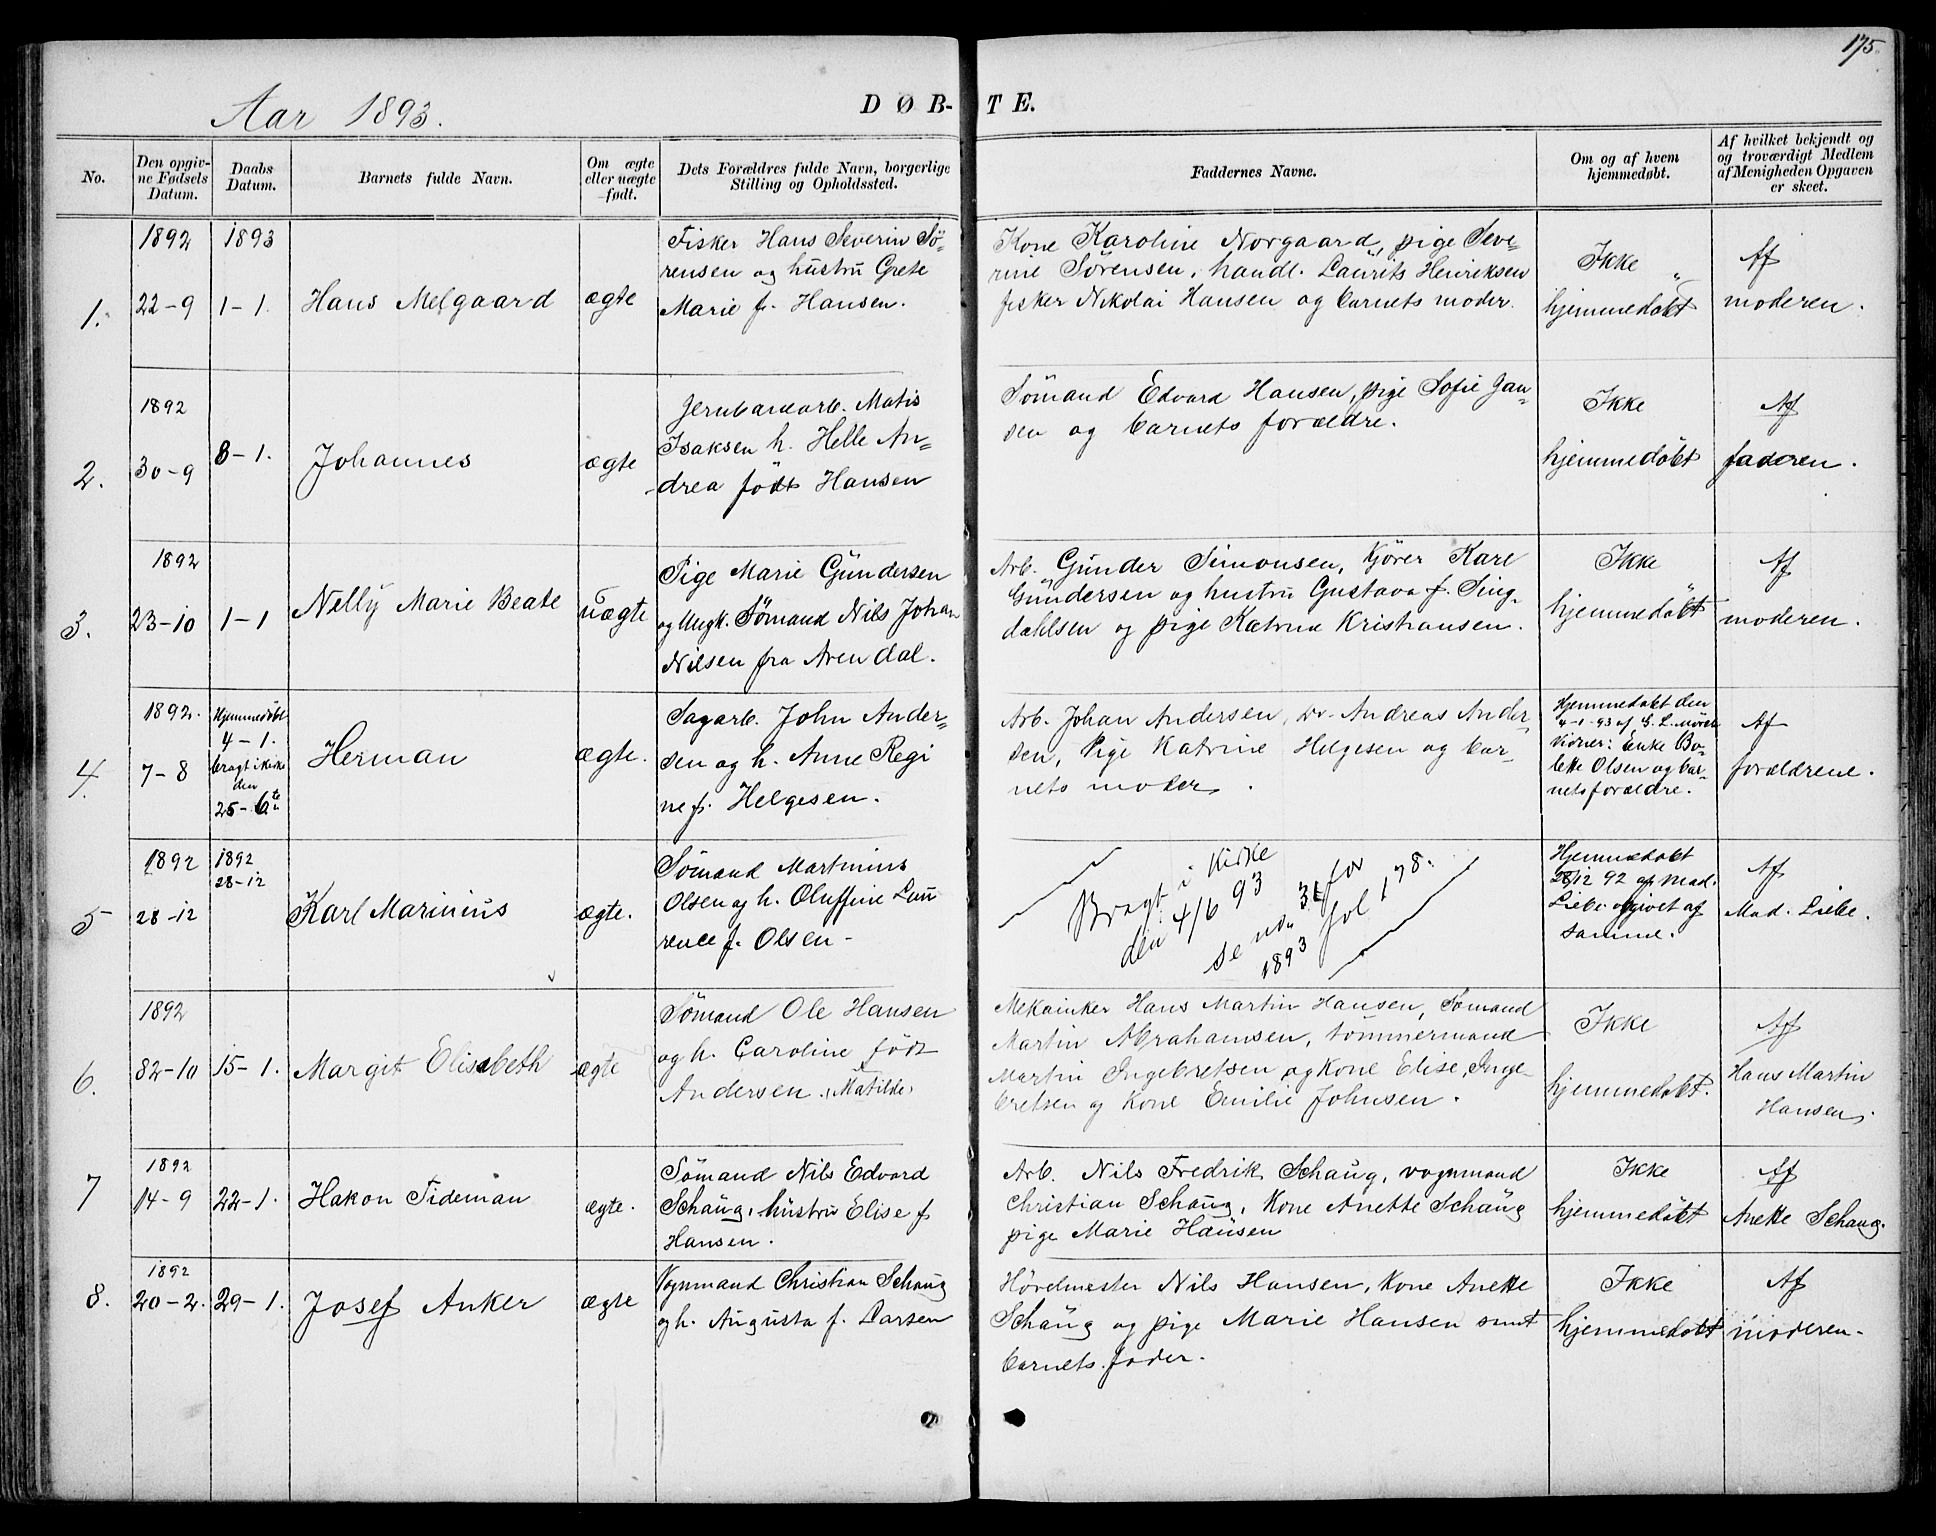 175.
Aar 1893.
DØB-TE.
No.
Den opgiv-
ne Fødsels
Datum.
Daabs
Datum.
Barnets fulde Navn.
Om ægte
eller uægte
født.
Dets Forældres fulde Navn, borgerlige
Stilling og Opholdssted.
Faddernes Navne.
Om og af hvem
hjemmedøbt.
Af hvilket bekjendt og
og troværdigt Medlem
af Menigheden Opgaven
er skeet.
1.
1892
22-9
1893
1-1.
Hans Melgaard
ægte
Fisker Hans Severin Sö-
rensen og hustru Grete
Marie f. Hansen.
Kone Karoline Norgaard, pige Seve-
rine Sörensen, handl. Laurits Henriksen
fisker Nikolai Hansen og barnets moder.
Ikke
hjemmedöbt
Af
moderen.
2.
1892
30-9
8-1.
Johannes
ægte
Jernbanearb. Matis
Isaksen h. Helle An-
drea födt Hansen
Sömand Edvard Hansen, pige Sofie Jan-
sen og barnets forældre.
Ikke
hjemmedöbt
Af
faderen.
3.
1892
23-10
1-1
Nelly Marie Beate
uægte
Pige Marie Gundersen
og Ungk. Sömand Nils Johan
Nilsen fra Arendal.
Arb. Gunder Simonsen, Kjörer Karl
Gundersen og hustru Gustava f. Sing-
dahlsen og pige Katrine Kristiansen.
Ikke
hjemmedöbt
Af
moderen.
4.
1892.
7-8
Hjemmedöbt
4-1.
bragt i kirke
den
25-6te
Herman
ægte.
Sagarb. John Ander-
sen og h. Anne Regi
ne f. Helgesen.
Arb. Johan Andersen, Do. Andreas Ander-
sen, Pige Katrine Helgesen og bar-
nets moder.
Hjemmedöbt den
4-1-93 af
Vidner: Enke Bo-
lette Olsen og bar-
nets forældre.
Af
forældrene.
5
1892
28-12
1892
28-12
Karl Marinius
ægte.
Sömand Martinius
Olsen og h. Oluffine Lau
rence f. Olsen-
Bragt i Kirke
den 4/6 93
se no. 31 for
1893 fol 178.
Hjemmedöbt
28/12 92 af Mad.
Liebe opgivet af
samme.
Af
Mad. Liebe.
6.
1892
82-10
15-1.
Margit Elisabeth
ægte
Sömand Ole Hansen
og h. Caroline födt
Andersen. (Matilde)
Mekainker Hans Martin Hansen, Sömand
Martin Abrahamsen, tömmermand
Martin Ingebretsen og Kone Elise Inge-
bretsen og Kone Emilie Johnsen.
Ikke
hjemmedöbt.
Af
Hans Martin
Hansen.
7
1892
14-9
22-1.
Hakon Tideman
ægte.
Sömand Nils Edvard
Schaug, hustru Elise f
Hansen.
Arb. Nils Fredrik Schaug, vognmand
Christian Schaug, Kone Anette Schaug
pige Marie Hansen
Ikke
hjemmedöbt
Af
Anette Schaug.
8.
1892
20-2.
29-1.
Josef Anker
ægte
Vognmand Christian Schaug
og h. Augusta f. Larsen
Nils Hansen, Kone Anette
Schaug og pige Marie Hansen samt
barnets fader.
Ikke
hjemmedöbt
Af
moderen-